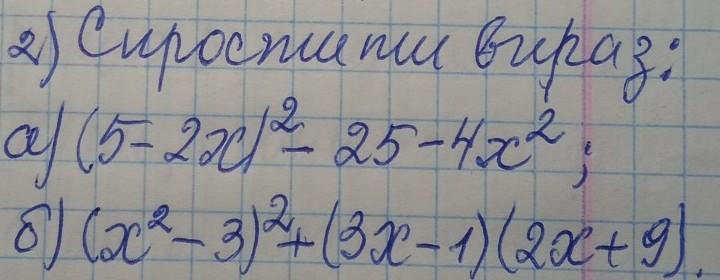 2) Спростити вираз:
а) (5-2x)²- 25-4x²;
б) (x²-3)²+(3x-1)(2x+9).